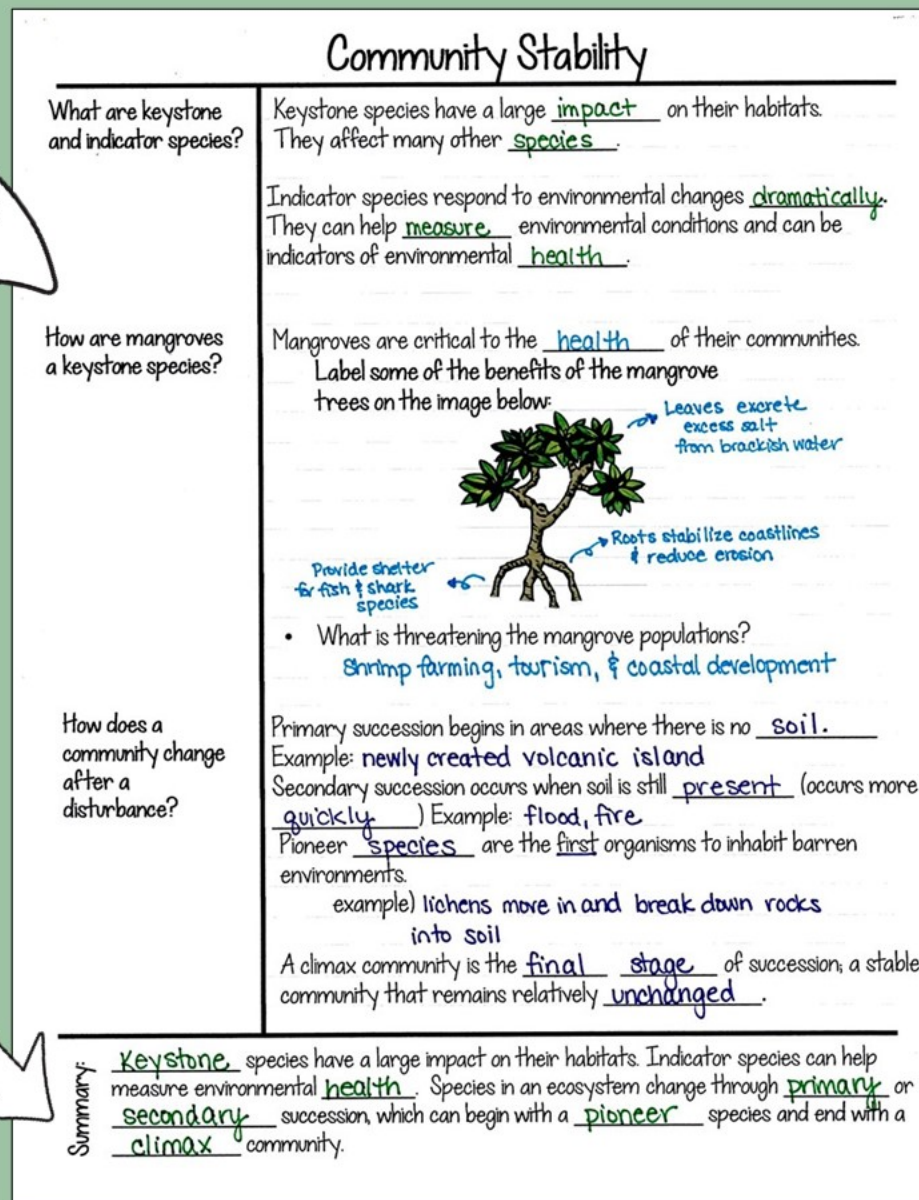 Community Stability
What are keystone
and indicator species?
Keystone species have a large impact on their habitats.
They affect many other species.
Indicator species respond to environmental changes dramatically.
They can help measure environmental conditions and can be
indicators of environmental health.
How are mangroves
a keystone species?
Mangroves are critical to the health of their communities.
Label some of the benefits of the mangrove
trees on the image below:
Leaves excrete
excess salt
from brackish water
Roots stabilize coastlines
& reduce erosion
Provide shelter
for fish & shark
species
• What is threatening the mangrove populations?
Shrimp farming, tourism, & coastal development
How does a
community change
after a
disturbance?
Primary succession begins in areas where there is no soil.
Example: newly created volcanic island
Secondary succession occurs when soil is still present (occurs more
quickly) Example: flood, fire
Pioneer species are the first organisms to inhabit barren
environments.
example) lichens move in and break down rocks
into soil
A climax community is the final stage of succession; a stable
community that remains relatively unchanged.
Summary:
Keystone species have a large impact on their habitats. Indicator species can help
measure environmental health. Species in an ecosystem change through primary or
secondary succession, which can begin with a pioneer species and end with a
climax community.